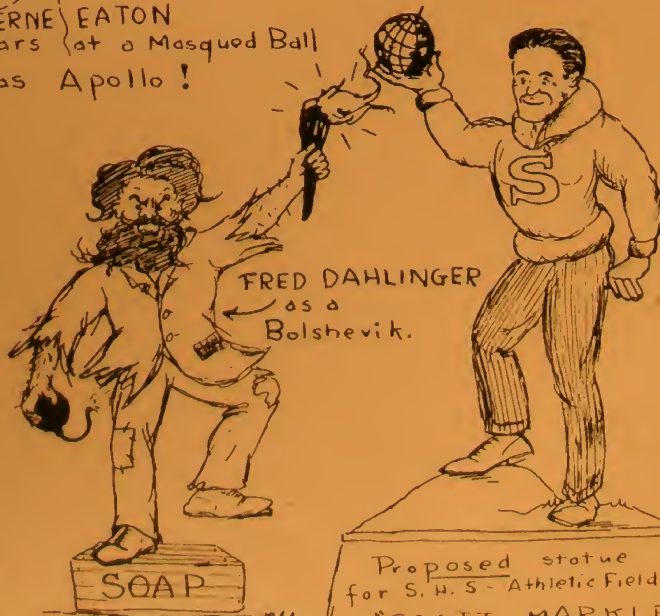 EATON
at a Masqued Ball
as Apollo!
S
FRED DAHLINGER
as a
Bolshevik.
SOAP
Proposed statue
for S. H. S. - Athletic Field